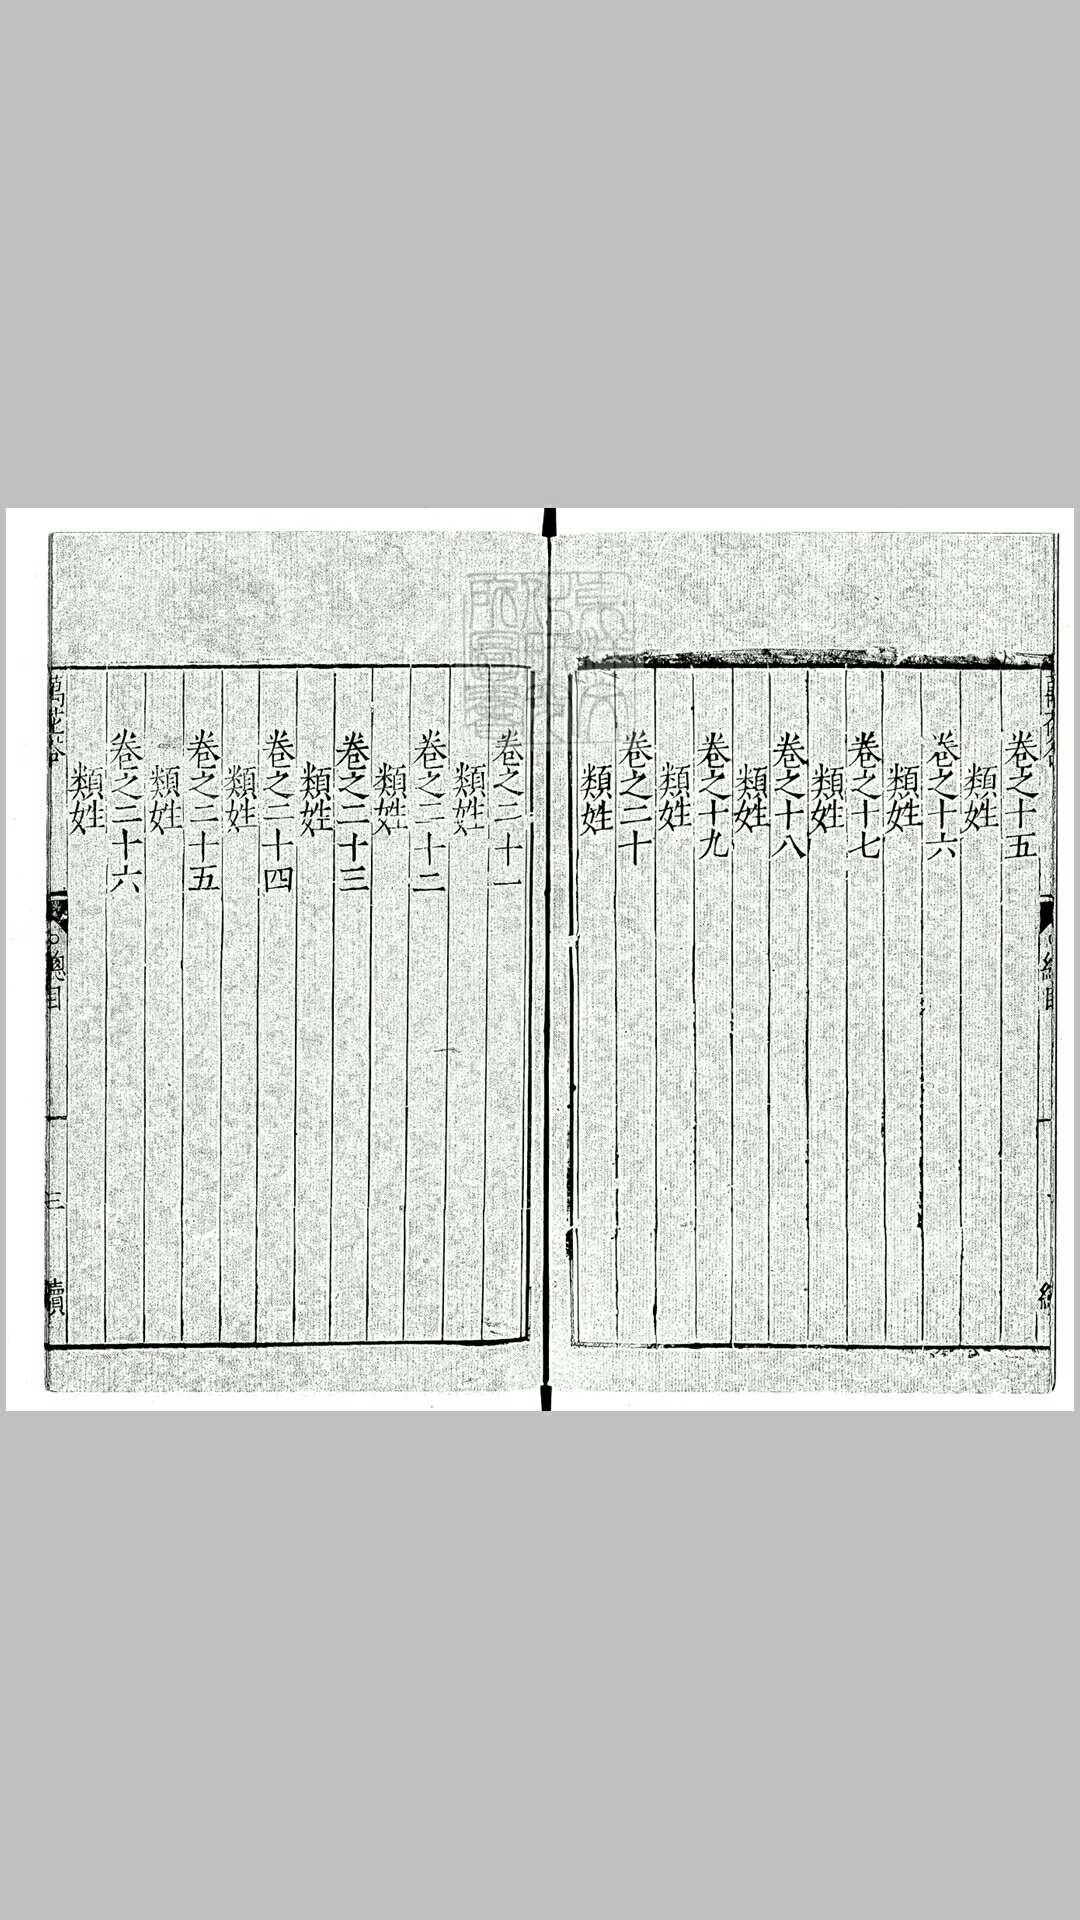 卷之十五
類姓
卷之十六
類姓
卷之十七
類姓
卷之十八
類姓
卷之十九
類姓
卷之二十
類姓
卷之二十一
類姓
卷之二十二
類姓
卷之二十三
類姓
卷之二十四
類姓
卷之二十五
類姓
卷之二十六
類姓
總目
三
續